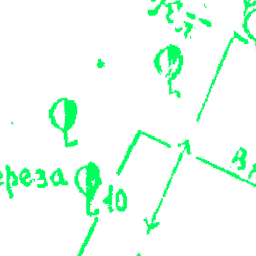 ереза
10